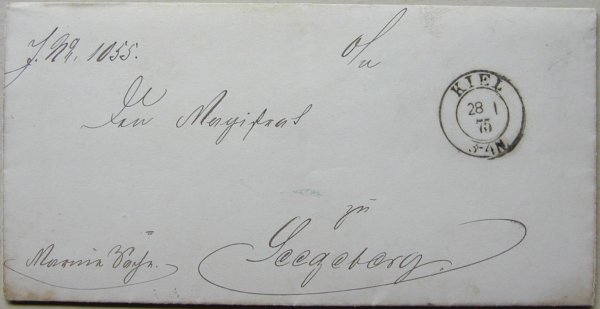 J. No. 1055.
KIEL
28 1
75
3-4N
Den Magistrat
zu
Seegeberg.
Marine Sache.